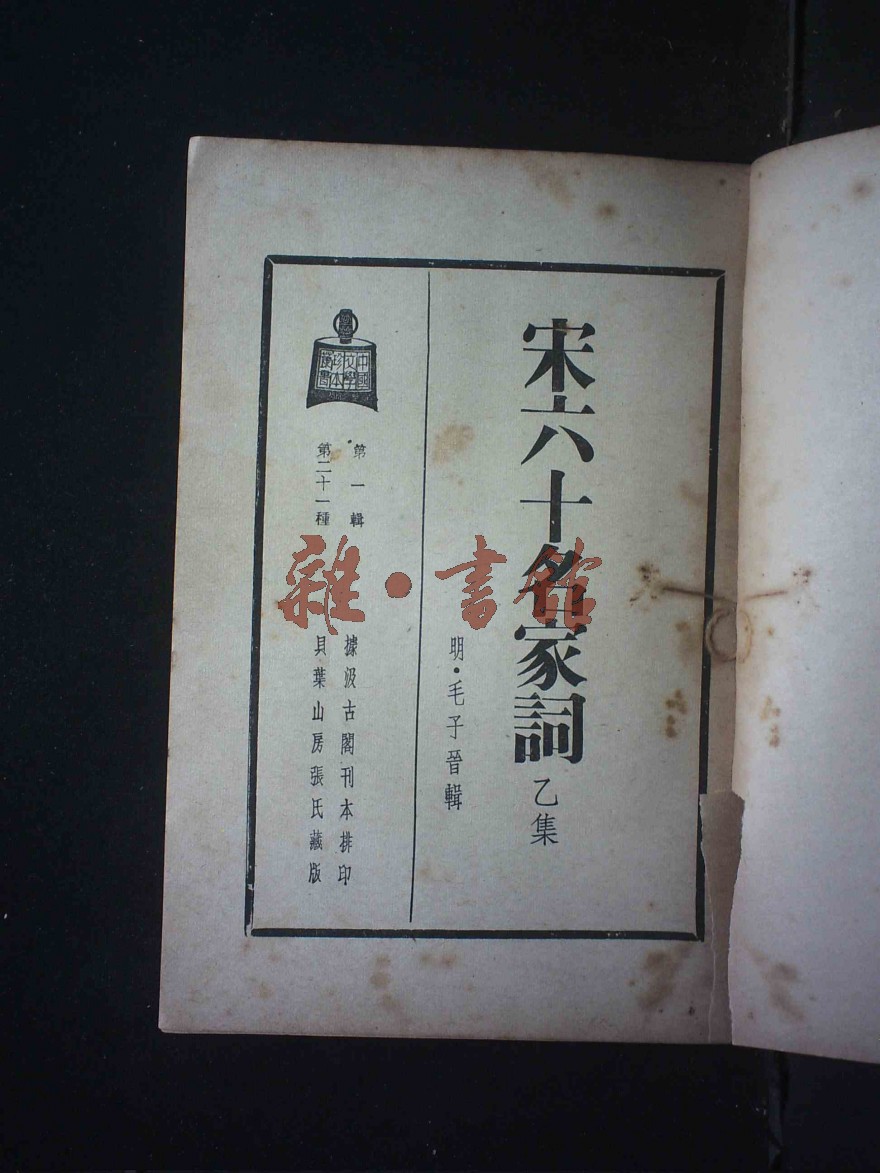 宋六十名家詞 乙集
明·毛子晉輯
第一輯
第二十一種
據汲古閣刊本排印
貝葉山房張氏藏版
中國
文學
珍本
叢書
雜·書館